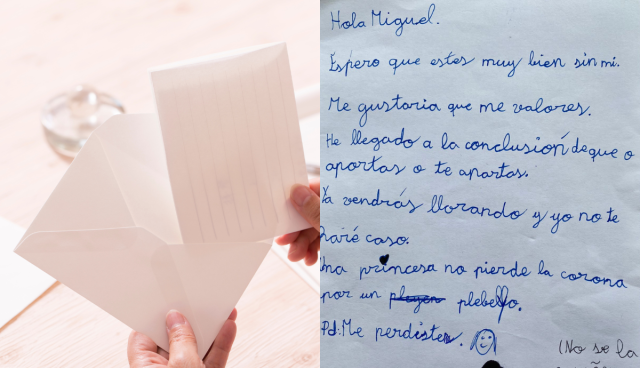 Hola Miguel.
Espero que estes muy bien sin mi.
Me gustaria que me valores.
He llegado a la conclusión de que o
aportas o te apartas.
Ya vendrás llorando y yo no te
haré caso.
Una princesa no pierde la corona
por un plebeyo.
Pd: Me perdistes.
(No se la